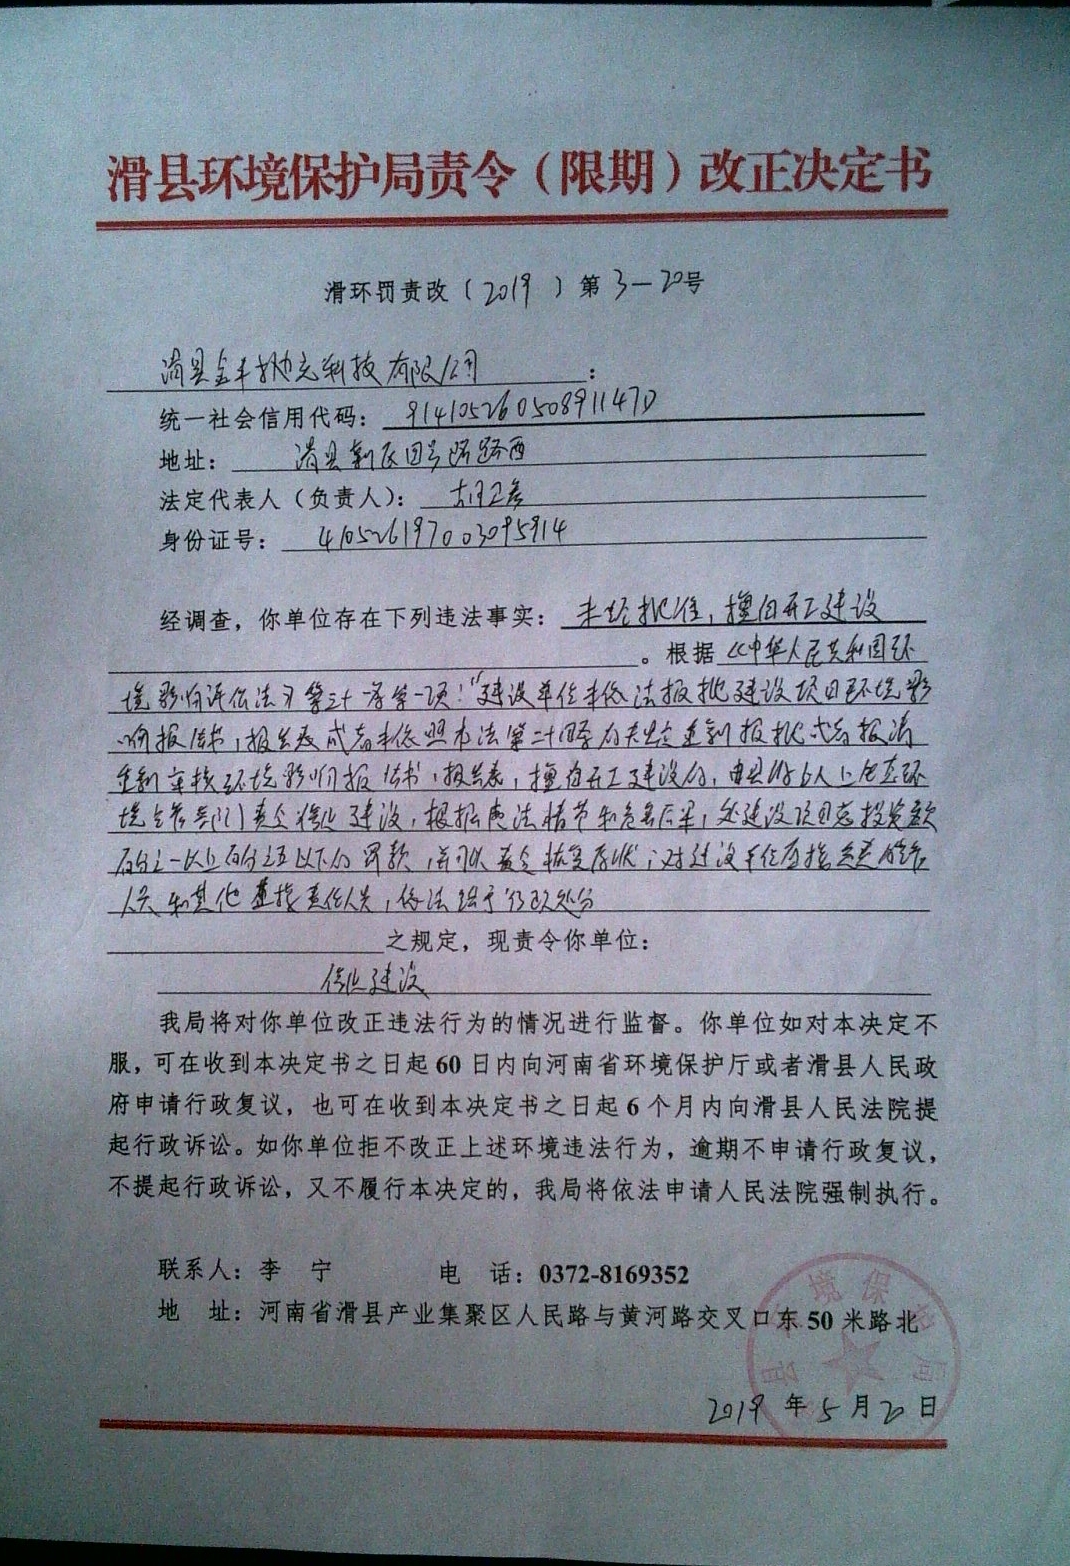 滑县环境保护局责令（限期）改正决定书
滑环罚责改（2019）第3-20号
滑县金丰抛光科技有限公司：
统一社会信用代码：91410526050891147D
地址：滑县新区四号路路西
法定代表人（负责人）：胡卫彦
身份证号：410526197003095914
经调查，你单位存在下列违法事实：未经批准，擅自开工建设
。根据《中华人民共和国环
境影响评价法》第三十一条第一项："建设单位未依法报批建设项目环境影
响报告书、报告表或者未依照本法第二十四条的规定重新报批或者报请
重新审核环境影响报告书、报告表，擅自开工建设的，由县级以上生态环
境主管部门责令停止建设，根据违法情节和危害后果，处建设项目总投资额
百分之一以上百分之五以下的罚款，并可以责令恢复原状；对建设单位直接负责的主管
人员和其他直接责任人员，依法给予行政处分
之规定，现责令你单位：
停止建设
我局将对你单位改正违法行为的情况进行监督。你单位如对本决定不
服，可在收到本决定书之日起60日内向河南省环境保护厅或者滑县人民政
府申请行政复议，也可在收到本决定书之日起6个月内向滑县人民法院提
起行政诉讼。如你单位拒不改正上述环境违法行为，逾期不申请行政复议，
不提起行政诉讼，又不履行本决定的，我局将依法申请人民法院强制执行。
联系人：李 宁 电 话：0372-8169352
地 址：河南省滑县产业集聚区人民路与黄河路交叉口东50米路北
2019年5月20日